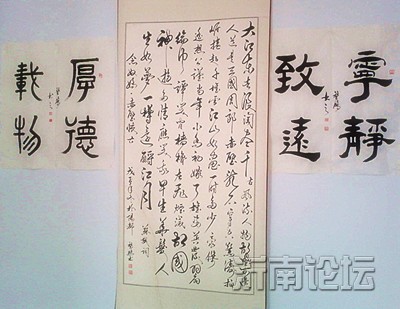 寧靜
致遠
大江东去浪淘尽千古风流人物故垒西边
人道是三国周郎赤壁乱石穿空惊涛拍
岸卷起千堆雪江山如画一时多少豪杰
遥想公瑾当年小乔初嫁了雄姿英发羽扇
纶巾谈笑间樯橹灰飞烟灭故國
神游多情应笑我早生华发人
生如梦一樽还酹江月
苏轼词
念奴娇赤壁怀古
厚德
載物
沂南论坛